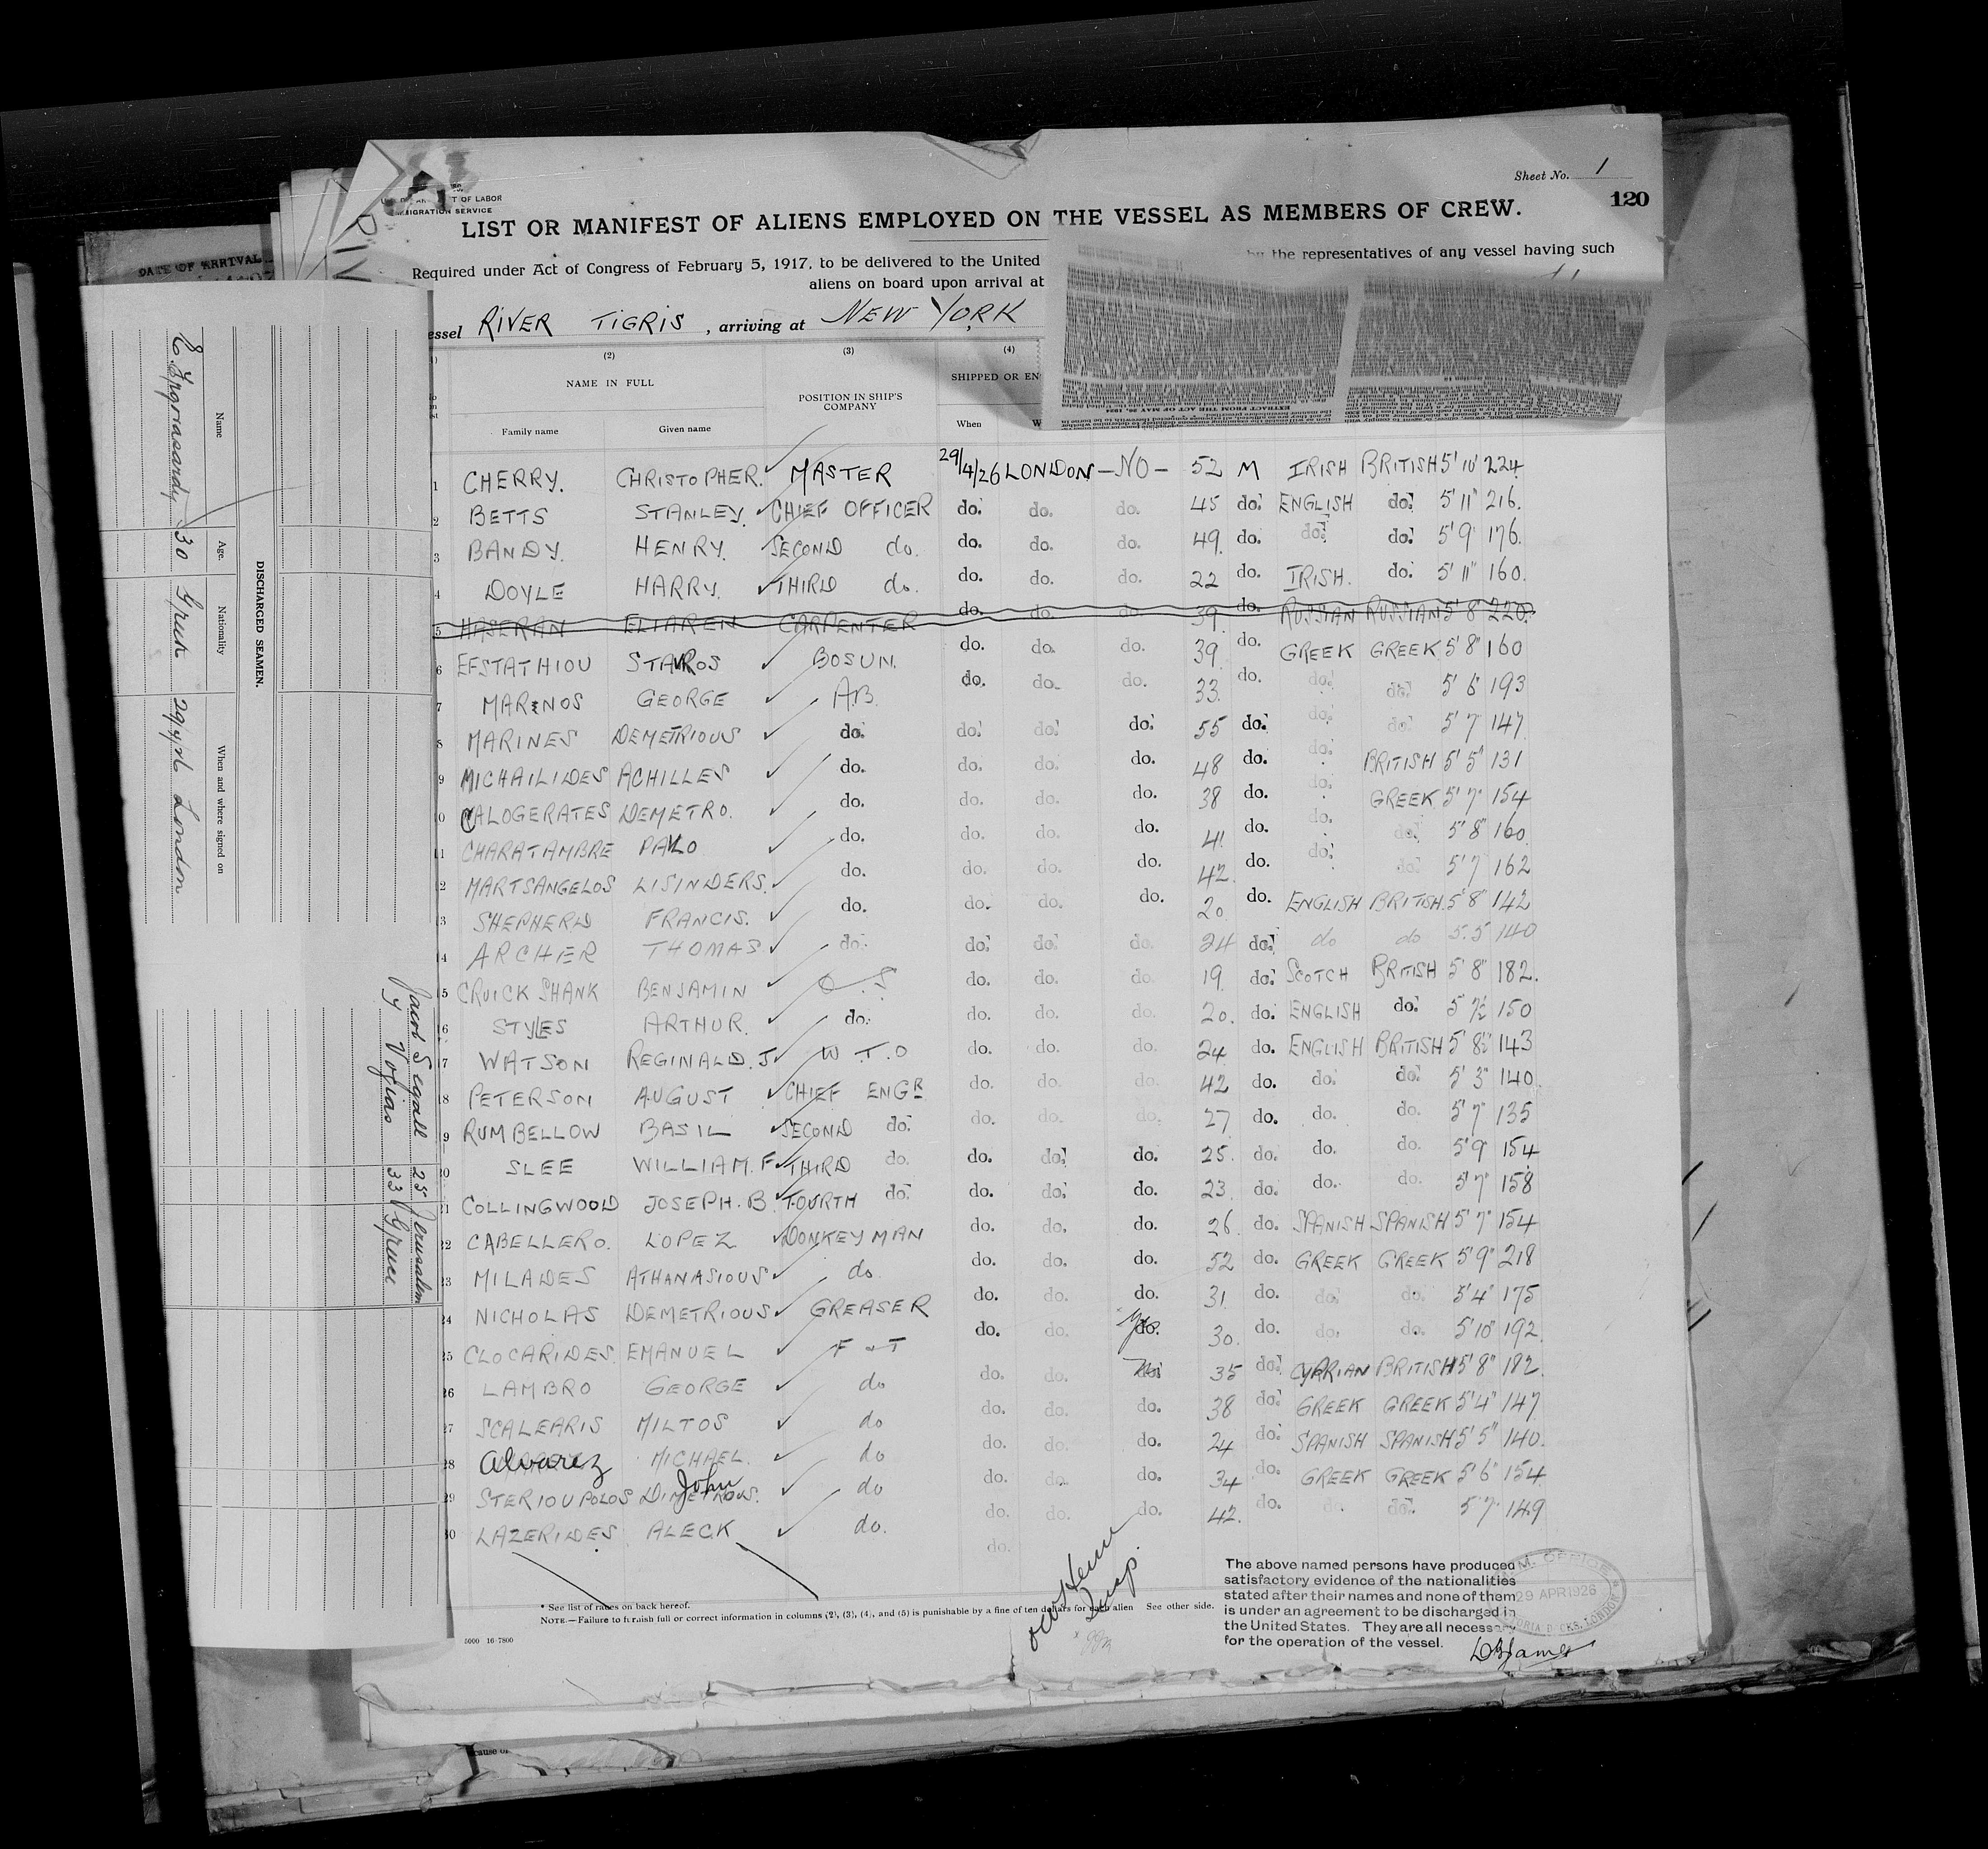 Sheet No. 1
120
T OF LABOR
MIGRATION SERVICE
LIST OR MANIFEST OF ALIENS EMPLOYED ON THE VESSEL AS MEMBERS OF CREW.
Required under Act of Congress of February 5, 1917, to be delivered to the United
by the representatives of any vessel having such
aliens on board upon arrival at
essel RIVER TIGRIS, arriving at NEW YORK
(2) (3) (4)
NAME IN FULL POSITION IN SHIP'S COMPANY SHIPPED OR EN
Family name Given name When W
EXTRACT FROM THE ACT OF MAY 26, 1924
1 CHERRY. CHRISTOPHER. MASTER 29/4/26 LONDON -NO- 52 M IRISH BRITISH 5' 10" 224
2 BETTS STANLEY. CHIEF OFFICER do. do. do. 45 do. ENGLISH do. 5' 11" 216.
3 BANDY. HENRY. SECOND do. do. do. do. 49 do. do. do. 5' 9" 176.
4 DOYLE HARRY. THIRD do. do. do. do. 22 do. IRISH. do. 5' 11" 160.
5 HASERAN ELIAREN CARPENTER do. do. do. 39 do. RUSSIAN RUSSIAN 5' 8" 220.
6 EFSTATHIOU STAVROS BOSUN. do. do. do. 39 do. GREEK GREEK 5' 8" 160
7 MARINOS GEORGE A.B. do. do. do. 33. do. do. do. 5' 6" 193
8 MARINES DEMETRIOUS do. do. do. do. 55 do. do. do. 5' 7" 147
9 MICHAILIDES ACHILLES do. do. do. do. 48 do. do. BRITISH 5' 5" 131
10 CALOGERATES DEMETRO. do. do. do. do. 38 do. do. GREEK 5' 7" 154
11 CHARATAMBRE PAVLO do. do. do. do. 41 do. do. do. 5' 8" 160
12 MARTSANGELOS LISINDERS. do. do. do. do. 42. do. do. do. 5' 7" 162
13 SHEPHERD FRANCIS. do. do. do. do. 20 do. ENGLISH BRITISH. 5' 8" 142
14 ARCHER THOMAS do. do. do. do. 24 do. do do 5.5 140
15 CRUICKSHANK BENJAMIN O.S. do. do. do. 19 do. SCOTCH BRITISH 5' 8" 182.
16 STYLES ARTHUR. do. do. do. do. 20. do. ENGLISH do. 5' 7½ 150
17 WATSON REGINALD. J W.T.O do. do. do. 24 do. ENGLISH BRITISH 5' 8½ 143
18 PETERSON AUGUST CHIEF ENGR do. do. do. 42 do. do. do. 5' 3" 140
19 RUMBELLOW BASIL SECOND do. do. do. do. 27 do. do. do. 5' 7" 135
20 SLEE WILLIAM. F THIRD do. do. do. do. 25. do. do. do. 5' 9" 154
21 COLLINGWOOD JOSEPH. B. FOURTH do. do. do. do. 23 do. do. do. 5' 7" 158
22 CABELLERO. LOPEZ DONKEYMAN do. do. do. 26 do. SPANISH SPANISH 5' 7" 154
23 MILADES ATHANASIOUS do do. do. do. 52 do. GREEK GREEK 5' 9" 218
24 NICHOLAS DEMETRIOUS GREASER do. do. do. 31. do. do. do. 5' 4" 175
25 CLOCARIDES. EMANUEL F & T do. do. do. 30. do. do. do. 5' 10" 192.
26 LAMBRO GEORGE do do. do. do. 35 do. CYPRIAN BRITISH 5' 8" 182.
27 SCALEARIS MILTOS do do. do. do. 38 do. GREEK GREEK 5' 4" 147
28 Alvarez MICHAEL. do do. do. do. 24 do. SPANISH SPANISH 5' 5" 140.
John
29 STERIOUPOLOS DIMETROUS. do do. do. do. 34 do. GREEK GREEK 5' 6" 154
30 LAZERIDES ALECK do. do. do. do. 42. do. do. do. 5' 7" 149
do.
* See list of races on back hereof.
NOTE.—Failure to furnish full or correct information in columns (2), (3), (4), and (5) is punishable by a fine of ten dollars for each alien See other side.
5000 16-7800
Insp.
The above named persons have produced
satisfactory evidence of the nationalities
stated after their names and none of them
is under an agreement to be discharged in
the United States. They are all necessary
for the operation of the vessel.
29 APR 1926
DATE OF ARRIVAL
DISCHARGED SEAMEN.
Name Age. Nationality When and where signed on
30 Greek 29/4/26 London
Jacob Segall 25 Jerusalem
Y Vofias 33 Greece
cause of